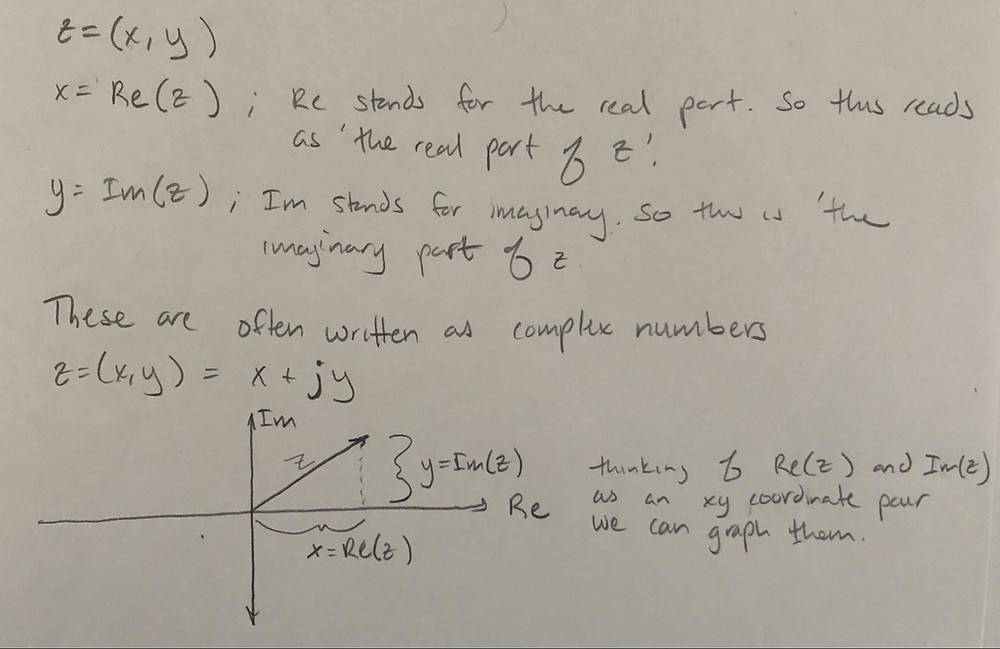 z = (x, y)
x = Re(z) ; Re stands for the real part. So this reads
as 'the real part of z'.
y = Im(z) ; Im stands for imaginary. So this is 'the
imaginary part of z.
These are often written as complex numbers
z = (x, y) = x + jy
Im
z
y = Im(z)
Re
x = Re(z)
thinking of Re(z) and Im(z)
as an xy coordinate pair
we can graph them.